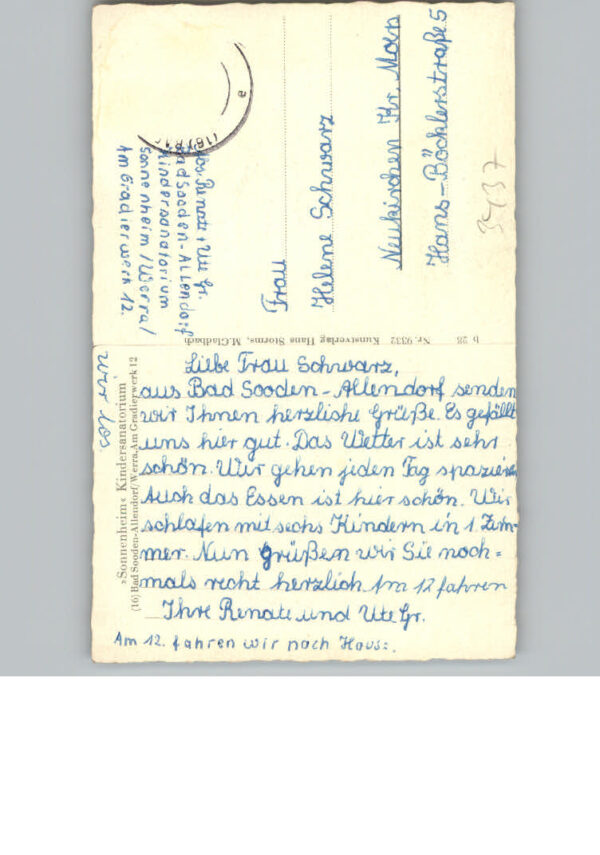 Liebe Frau Schwarz,
aus Bad Sooden-Allendorf senden
wir Ihnen herzliche Grüße. Es gefällt
uns hier gut. Das Wetter ist sehr
schön. Wir gehen jeden Tag spazieren
Auch das Essen ist hier schön. Wir
schlafen mit sechs Kindern in 1 Zim-
mer. Nun grüßen wir Sie noch=
mals recht herzlich. Am 12 fahren
Ihre Renate und Ute Gr.
Am 12. fahren wir nach Haus.
wir los.
»Sonnenheim« Kindersanatorium
(16) Bad Sooden-Allendorf/Werra, Am Gradierwerk 12
Nr. 9332 Kunstverlag Hans Storms, M.Gladbach
b 28
Abs. Renate + Ute Gr.
Bad Sooden-Allendorf
Kindersanatorium
Sonnenheim/Werra/
Am Gradierwerk 12.
(16) BA
e
Frau
Helene Schwarz
Neukirchen Kr. Moers
Hans-Böcklerstraße 5
3437